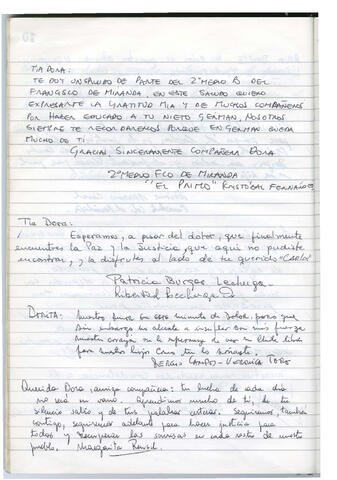 TIA DORA:
TE DOY UN SALUDO DE PARTE DEL 2º MEDIO B DEL
FRANCISCO DE MIRANDA, EN ESTE SALUDO QUIERO
EXPRESARTE LA GRATITUD MIA Y DE MUCHOS COMPAÑEROS
POR HABER EDUCADO A TU NIETO GERMAN, NOSOTROS
SIEMPRE TE RECORDAREMOS PORQUE EN GERMAN QUEDA
MUCHO DE TI.
GRACIAS, SINCERAMENTE COMPAÑERA DORA
2º MEDIO FCO DE MIRANDA
"EL PRIMO" KRISTOBAL FERNANDEZ
Tía Dora:
Esperamos, a pesar del dolor, que finalmente
encuentres la Paz y la Justicia, que aquí no pudiste
encontrar, y la disfrutes al lado de tu querido "CARLOS"
Patricia Burgos Lechuga
Libertad
DORITA: nuestro en este minuto de dolor, para que
sin embargo un
nuestro corazón la esperanza de ver un Chile libre
para nuestros hijos Como tú lo soñaste.
SERGIO CAMPOS - VERONICA TORO
Querida Dora, amiga compañera: tu lucha de cada día
no será en vano. Aprendimos mucho de ti, de tu
silencio sabio y de tus palabras certeras. Seguiremos, también
contigo, seguiremos adelante para hacer justicia para
todos y recuperar las sonrisas en cada rostro de nuestro
pueblo. Margarita